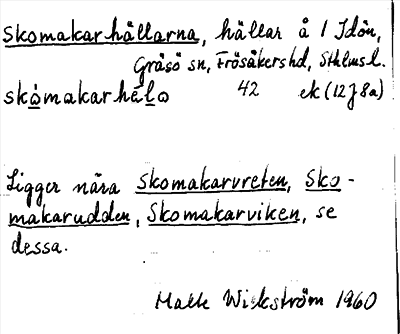 Skomakarhällarna, hällar å / Idön,
Gräsö sn, Frösåkers hd, Sthlms l.
skòmakarhèla 42 ek (12J8a)
Ligger nära Skomakarvreten, Sko-
makarudden, Skomakarviken, se
dessa.
Wickström 1960